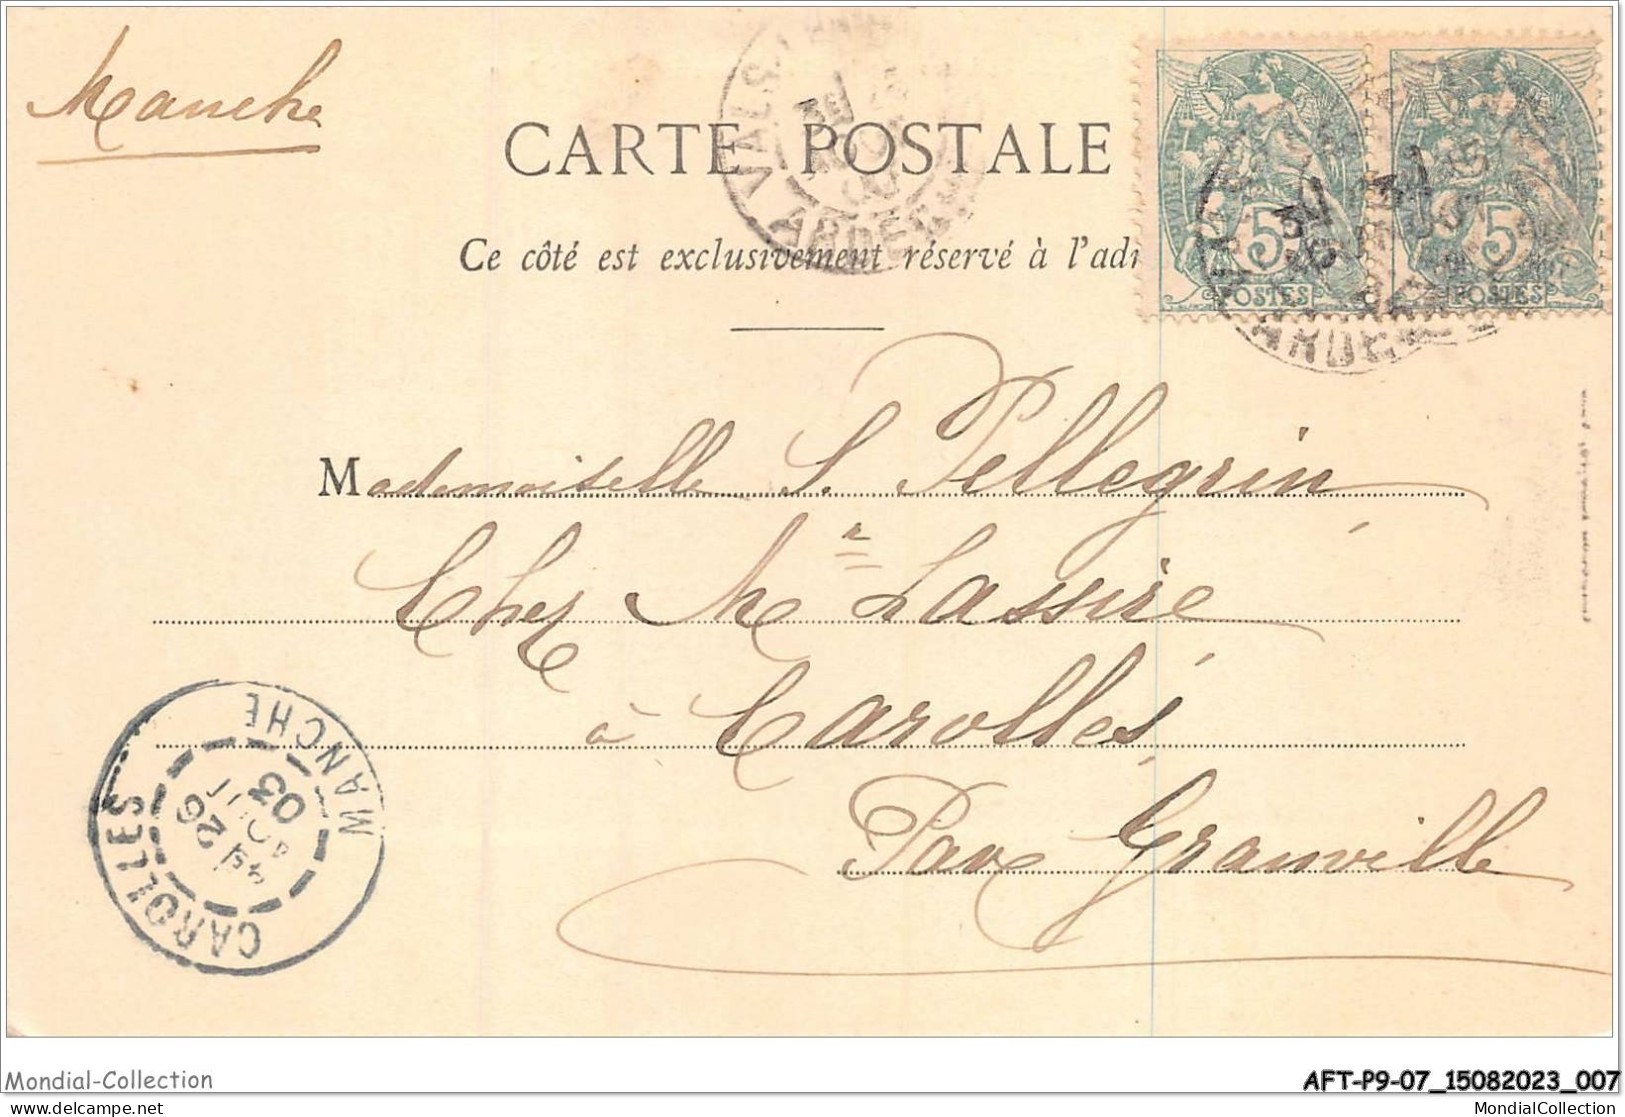 Manche
CARTE POSTALE
Ce côté est exclusivement réservé à l'ad
VALS
ARDÈCHE
5
POSTES
5
POSTES
ARDÈCHE
Mademoiselle S. Pellegrin
Chez Mr Lassire
à Carolles
Par Granville
CAROLLES
MANCHE
26
AOUT
03
Mondial-Collection
AFT-P9-07_15082023_007
delcampe.net
MondialCollection